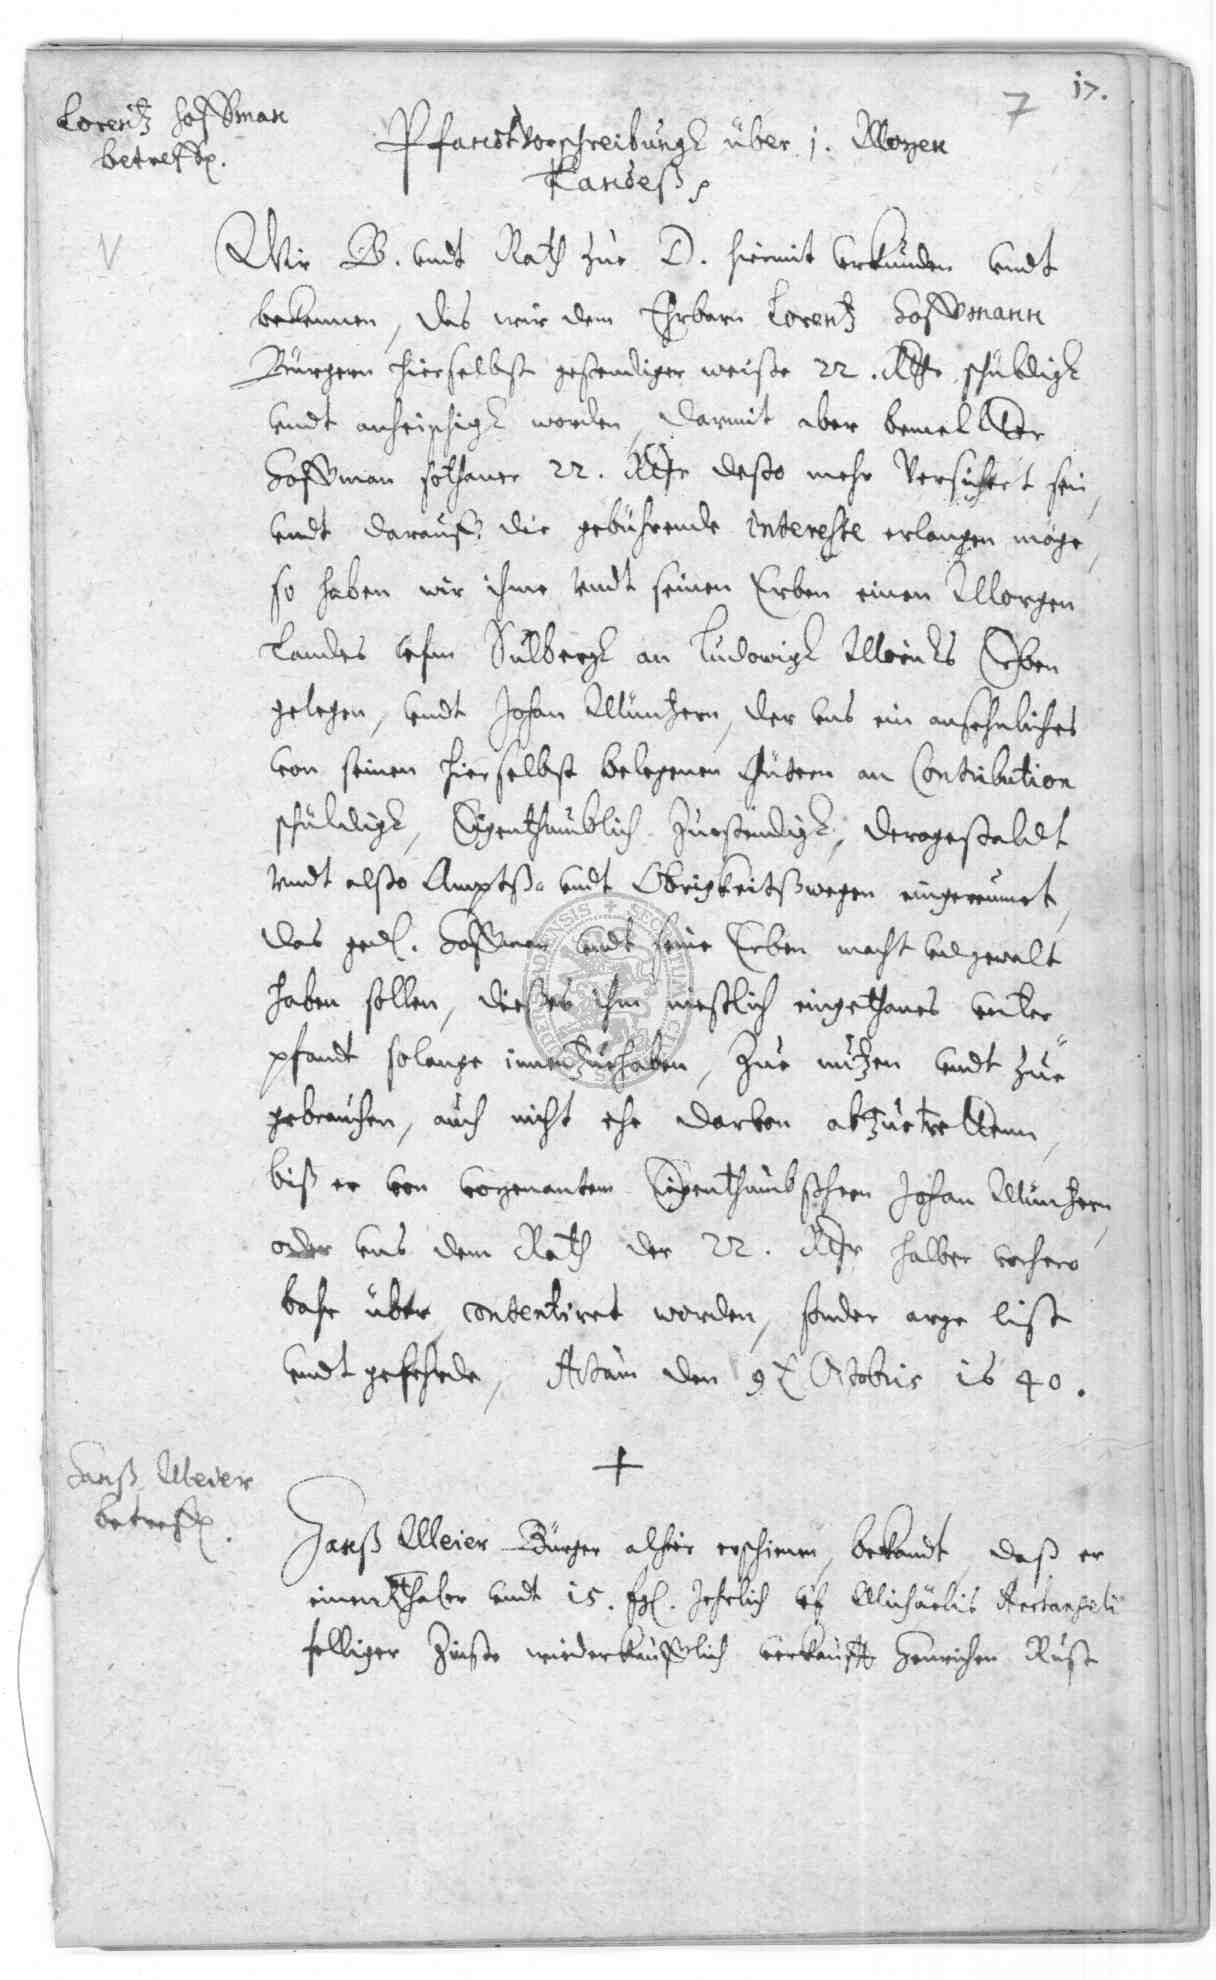 17.
7
Lorentz Hoffman
betreff.
Pfandtvorschreibungk über 1. Morgen
Landeß
Wir B. undt Rath zue D. hiermit uhrkunden undt
bekennen, das wir dem Ehrbarn Lorentz Hoffmann
Bürgern hierselbst gestendiger weise 22. Rthr schüldigk
undt anheischigk worden, darmit aber bemellter
Hoffman solthaner 22. Rthr desto mehr versichert sein,
undt darauß die gebührende interesse erlangen möge,
so haben wir ihme undt seinen Erben einen Morgen
Landes ufm Sülbergk an Ludowigk Meinets Erben
gelegen, undt Johan Müntzern, der uns ein ansehnliches
von seinen hierselbst belegenen Gütern an Contribution
schüldigk, Eigenthaumblich zustendigk, derogestaldt
undt alßo Amptß- undt Obrigkeitßwegen eingereumet,
das gedl. Hoffman undt seine Erben macht und gewalt
haben sollen, dießes ihm eingethanes unter
pfandt solange innen zuehaben, zue nützen undt zue
gebrauchen, auch nicht ehe darvon abzuetrettenn,
biß er von vorgenantem Eigenthaumbßhern Johan Müntzern,
oder uns dem Rath der 22. Rthr halber
bahr über contentiret worden, sonder arge list
undt gefehrde, Actum den 9t Octobris 1640.
+
Hanß Meier
betreff.
Hanß Meier Bürger alhier erschienen, bekandt, daß er
einen thaler undt 15. fgl. Jehrlich uf Michäelis Archangeli
felliger Zinse wiederkaufflich verkaufft Henrichen Rust